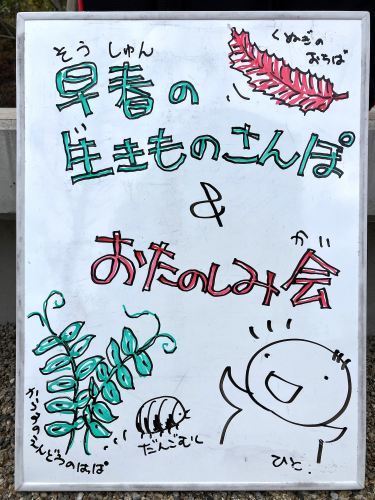 そうしゅん
早春の
くぬぎの
おちば
生きものさんぽ
&
かい
おたのしみ会
からすのえんどうのはっぱ
だんごむし
ひと.